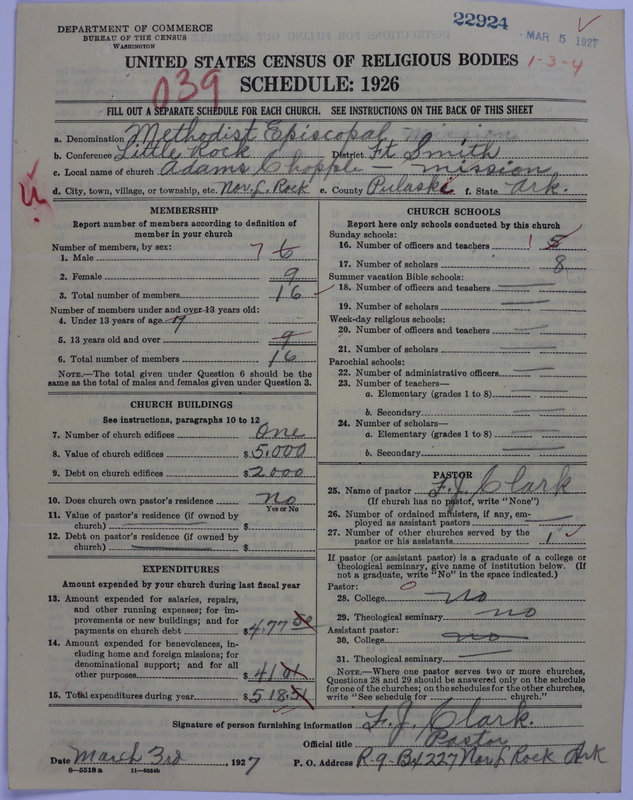 22924
MAR 5 1927
DEPARTMENT OF COMMERCE
BUREAU OF THE CENSUS
WASHINGTON
UNITED STATES CENSUS OF RELIGIOUS BODIES
1-3-4
SCHEDULE: 1926
039
FILL OUT A SEPARATE SCHEDULE FOR EACH CHURCH. SEE INSTRUCTIONS ON THE BACK OF THIS SHEET
a. Denomination Methodist Episcopal mission
b. Conference Little Rock District Ft. Smith
c. Local name of church Adams Chopple mission
d. City, town, village, or township, etc. Nor. L. Rock e. County Pulaski f. State Ark.
MEMBERSHIP
Report number of members according to definition of
member in your church
Number of members, by sex:
1. Male 7 6
2. Female 9
3. Total number of members 16
Number of members under and over 13 years old:
4. Under 13 years of age
5. 13 years old and over 9
6. Total number of members 16
NOTE.—The total given under Question 6 should be the
same as the total of males and females given under Question 3.
CHURCH BUILDINGS
See instructions, paragraphs 10 to 12
7. Number of church edifices One
8. Value of church edifices $5,000
9. Debt on church edifices $2000
10. Does church own pastor's residence no
Yes or No
11. Value of pastor's residence (if owned by
church) $
12. Debt on pastor's residence (if owned by
church) $
EXPENDITURES
Amount expended by your church during last fiscal year
13. Amount expended for salaries, repairs,
and other running expenses; for im-
provements or new buildings; and for
payments on church debt $477 50
14. Amount expended for benevolences, in-
cluding home and foreign missions; for
denominational support; and for all
other purposes $41 01
15. Total expenditures during year $518.51
CHURCH SCHOOLS
Report here only schools conducted by this church
Sunday schools:
16. Number of officers and teachers 1 5
17. Number of scholars 8
Summer vacation Bible schools:
18. Number of officers and teachers
19. Number of scholars
Week-day religious schools:
20. Number of officers and teachers
21. Number of scholars
Parochial schools:
22. Number of administrative officers
23. Number of teachers—
a. Elementary (grades 1 to 8)
b. Secondary
24. Number of scholars—
a. Elementary (grades 1 to 8)
b. Secondary
PASTOR
25. Name of pastor F. J. Clark
(If church has no pastor, write "None")
26. Number of ordained ministers, if any, em-
ployed as assistant pastors
27. Number of other churches served by the
pastor or his assistants 1
If pastor (or assistant pastor) is a graduate of a college or
theological seminary, give name of institution below. (If
not a graduate, write "No" in the space indicated.)
Pastor: 0
28. College no
29. Theological seminary no
Assistant pastor:
30. College no
31. Theological seminary
NOTE.—Where one pastor serves two or more churches,
Questions 28 and 29 should be answered only on the schedule
for one of the churches; on the schedules for the other churches,
write "See schedule for church."
Signature of person furnishing information F. J. Clark.
Official title Pastor
Date March 3rd, 1927 P. O. Address R-9-Bx 227 Nor. L Rock Ark
8—5518 a 11—9034b